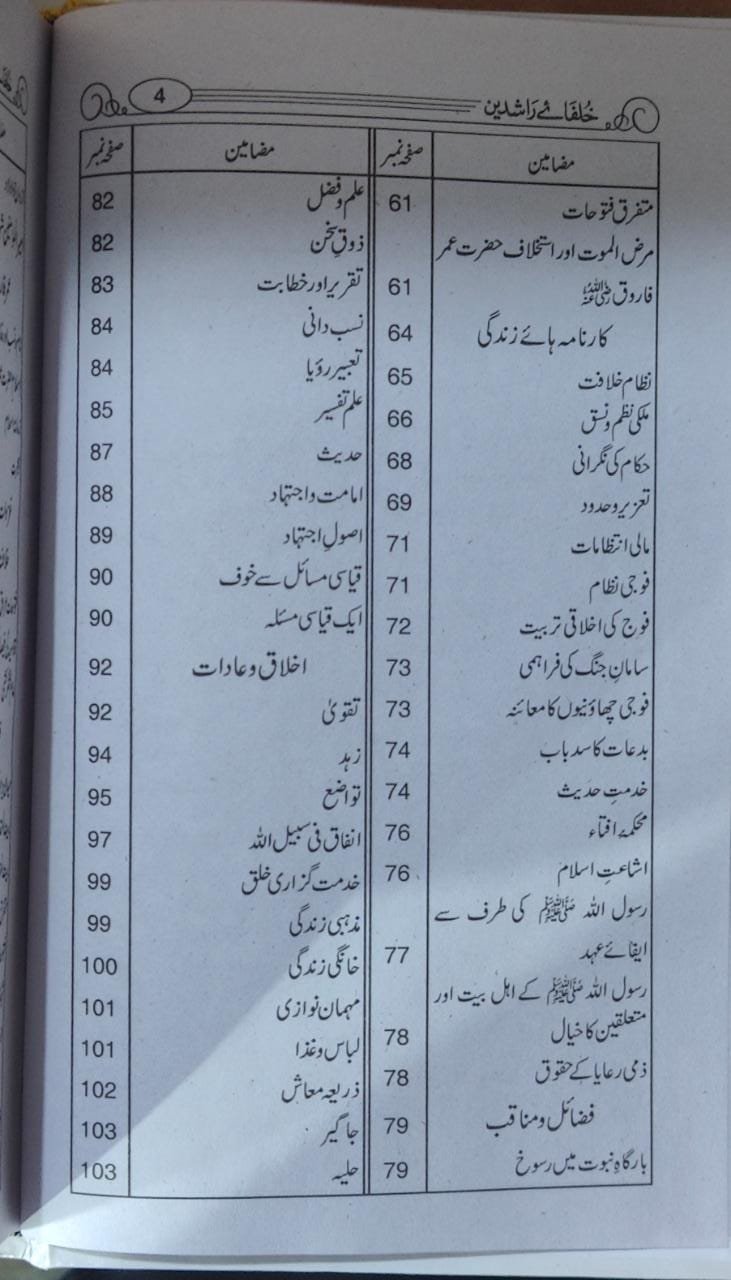 خُلفائے رَاشدین 4
مضامین صفحہ نمبر
متفرق فتوحات 61
مرض الموت اور استخلاف حضرت عمر
فاروق رضی اللہ عنہ 61
کارنامہ ہائے زندگی 64
نظام خلافت 65
ملکی نظم و نسق 66
حکام کی نگرانی 68
تعزیر و حدود 69
مالی انتظامات 71
فوجی نظام 71
فوج کی اخلاقی تربیت 72
سامانِ جنگ کی فراہمی 73
فوجی چھاؤنیوں کا معائنہ 73
بدعات کا سد باب 74
خدمتِ حدیث 74
محکمہ افتاء 76
اشاعتِ اسلام 76
رسول اللہ ﷺ کی طرف سے
ایفائے عہد 77
رسول اللہ ﷺ کے اہل بیت اور
متعلقین کا خیال 78
ذمی رعایا کے حقوق 78
فضائل و مناقب 79
بارگاہِ نبوت میں رسوخ 79
مضامین صفحہ نمبر
علم و فضل 82
ذوقِ سخن 82
تقریر اور خطابت 83
نسب دانی 84
تعبیر رؤیا 84
علم تفسیر 85
حدیث 87
امامت و اجتہاد 88
اصولِ اجتہاد 89
قیاسی مسائل سے خوف 90
ایک قیاسی مسئلہ 90
اخلاق و عادات 92
تقویٰ 92
زہد 94
تواضع 95
انفاق فی سبیل اللہ 97
خدمت گزاری خلق 99
مذہبی زندگی 99
خانگی زندگی 100
مہمان نوازی 101
لباس و غذا 101
ذریعہ معاش 102
جاگیر 103
حلیہ 103